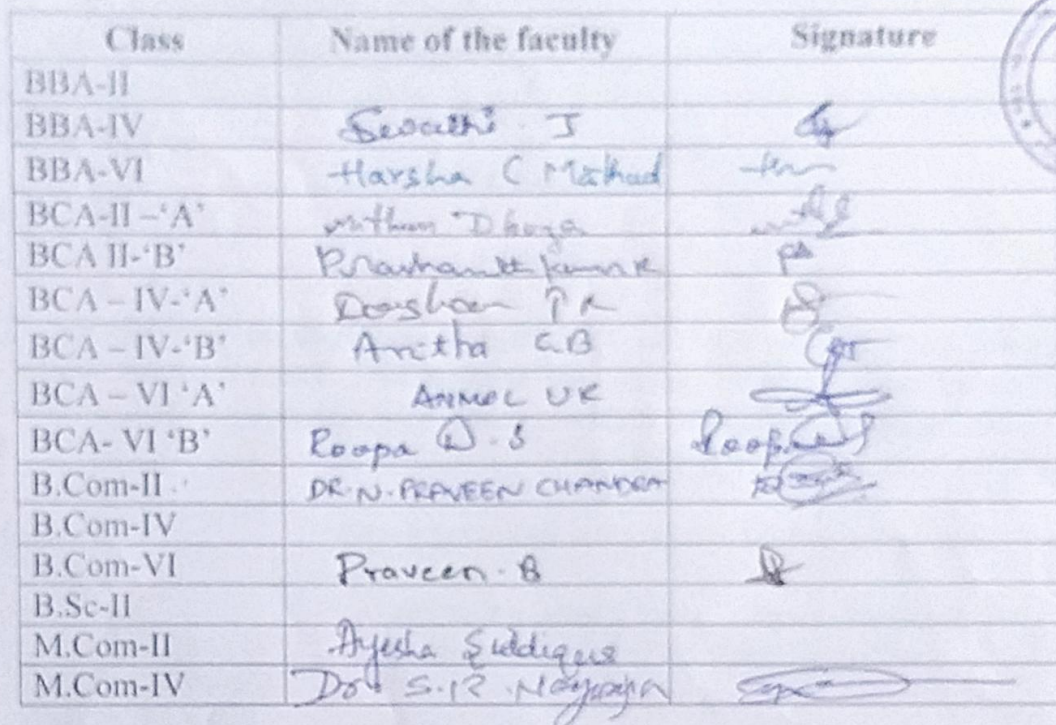 Class Name of the faculty Signature
BBA-II
BBA-IV J
BBA-VI Harsha C Mathad
BCA-II –‘A’ Dhooja
BCA II-‘B’ Prashanth Kumar K
BCA – IV-‘A’ Darshan P R
BCA – IV-‘B’ Anitha G.B
BCA – VI ‘A’ ANMOL UK
BCA- VI ‘B’ Roopa D.S
B.Com-II DR.N.PRAVEEN CHANDRA
B.Com-IV
B.Com-VI Praveen.B
B.Sc-II
M.Com-II Ayesha Siddiqua
M.Com-IV Dr. S.R